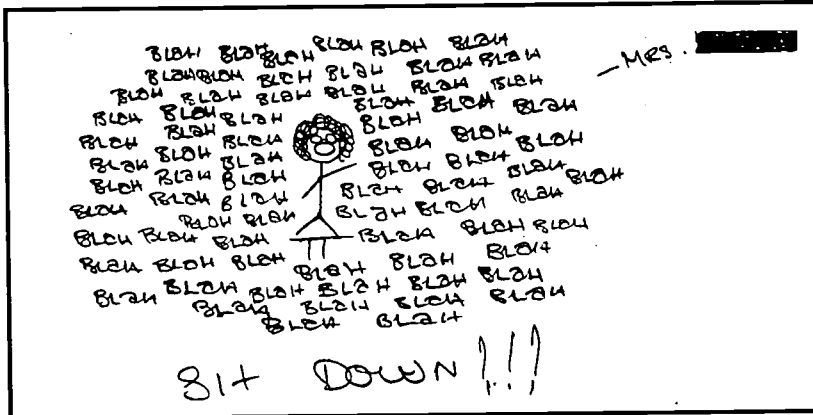 BLAH BLAH BLAH BLAH BLAH BLAH — MRS.
BLAH BLAH BLAH BLAH BLAH BLAH
BLAH BLAH BLAH BLAH BLAH BLAH
BLAH BLAH BLAH BLAH BLAH BLAH
BLAH BLAH BLAH BLAH
BLAH BLAH BLAH BLAH BLAH BLAH
BLAH BLAH BLAH BLAH BLAH BLAH
BLAH BLAH BLAH BLAH BLAH BLAH BLAH
BLAH BLAH BLAH BLAH BLAH
BLAH BLAH BLAH BLAH BLAH BLAH
BLAH BLAH BLAH BLAH BLAH BLAH
BLAH BLAH BLAH BLAH BLAH BLAH
BLAH BLAH BLAH BLAH
BLAH BLAH
SIT DOWN!!!